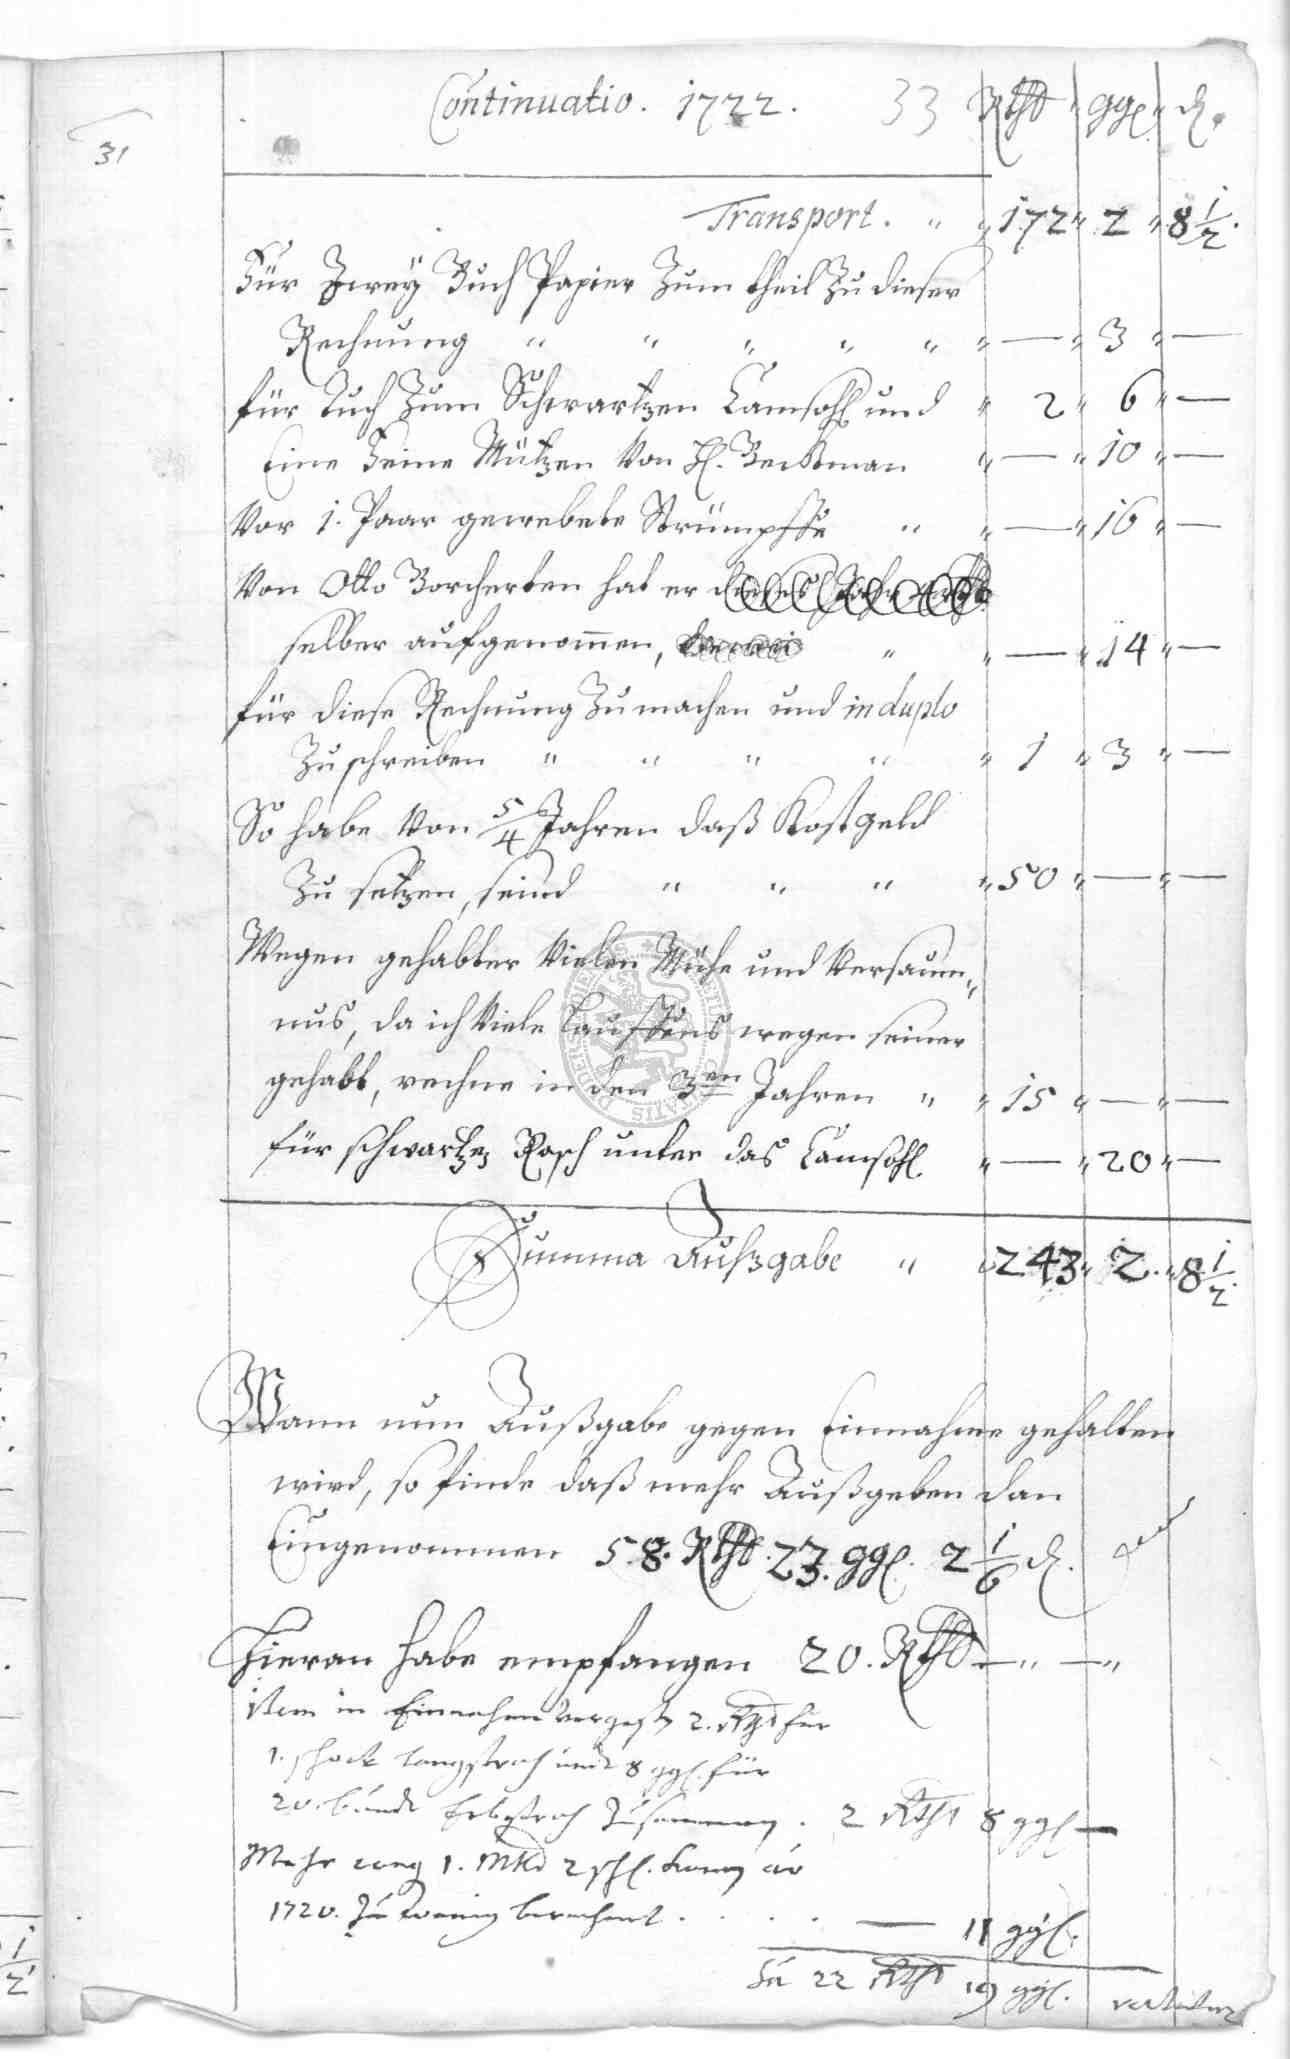 Continuatio. 1722. 33 Rthl ggl. d.
31
Transport. " " 172 " 2 " 8 1/2.
Für Zwey Buch Papier Zum theil Zu dieser
Rechnung " " " " " " — " 3 " —
für Tuch Zum Schwartzen Camsohl und " 2 " 6 " —
Eine Seine Mützen Von H. Beckman " — " 10 " —
Vor 1. Paar gewebete Strümpffe " " — " 16 " —
Von Otto Borcherten hat er
selber aufgenommen, " " — " 14 " —
für diese Rechnung Zu machen und in duplo
Zu schreiben " " " " " 1 " 3 " —
So habe Von 5/4 Jahren daß Kostgeld
Zu setzen, seind " " " " 50 " — " —
Wegen gehabter Vielen Mühe und Versaum-
nus, da ich Viele Lauffens wegen seiner
gehabt, rechne in den 3en Jahren " " 15 " — " —
für schwartz Rasch unter das Camsohl " — " 20 " —
Summa Außgabe " " 243 " 2. " 8 1/2.
Wann nun Außgabe gegen Einnahme gehalten
wird, so finde daß mehr Außgeben dan
Eingenommen 58. Rthl. 23. ggl. 2 1/6 d.
Hieran habe empfangen 20. Rthl — " — "
item in Einnahm Vergeß 2. Rthl für
1. schock langstroh und 8 ggl. für
20. bundt Erbstroh Zusammen . 2 Rthl 8 ggl —
Mehr 1. 2 schl.
1720. Zu wenig berechnet . . . . — 11 ggl.
Sa 22 Rthl 19 ggl. vertatur
1/2